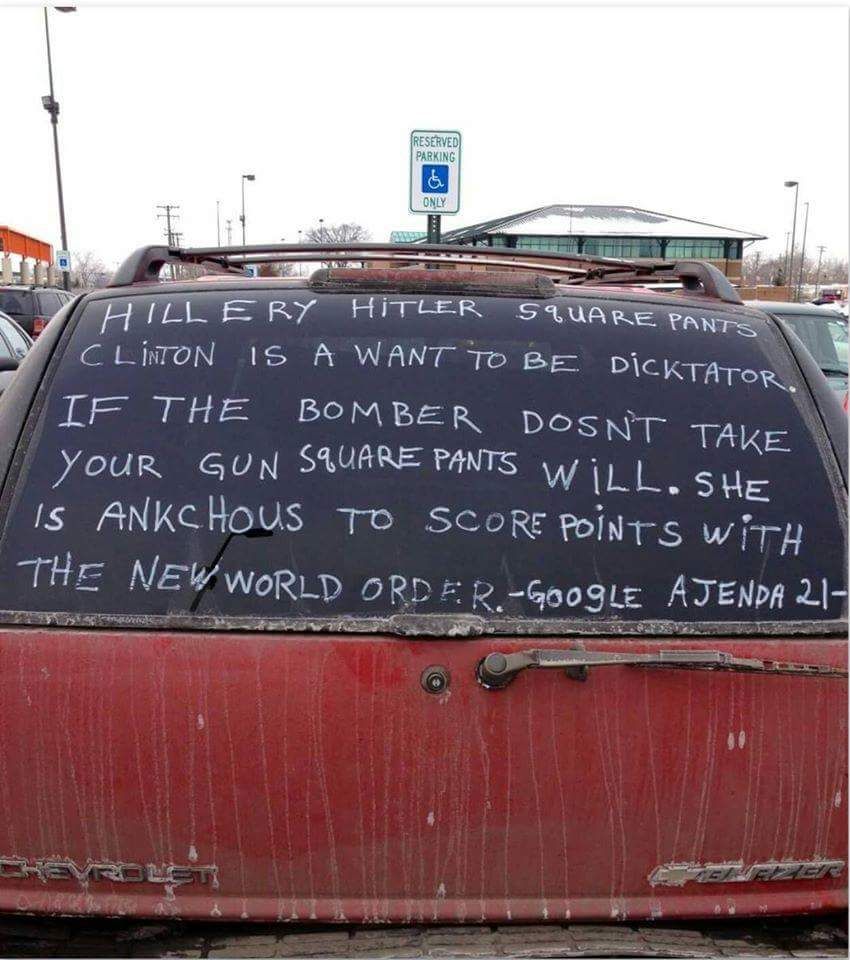 RESERVED
PARKING
ONLY
HILLERY HITLER SQUARE PANTS
CLINTON IS A WANT TO BE DICKTATOR.
IF THE BOMBER DOSNT TAKE
YOUR GUN SQUARE PANTS WILL. SHE
IS ANKCHOUS TO SCORE POINTS WITH
THE NEW WORLD ORDER. -GOOGLE AJENDA 21-
CHEVROLET
BLAZER